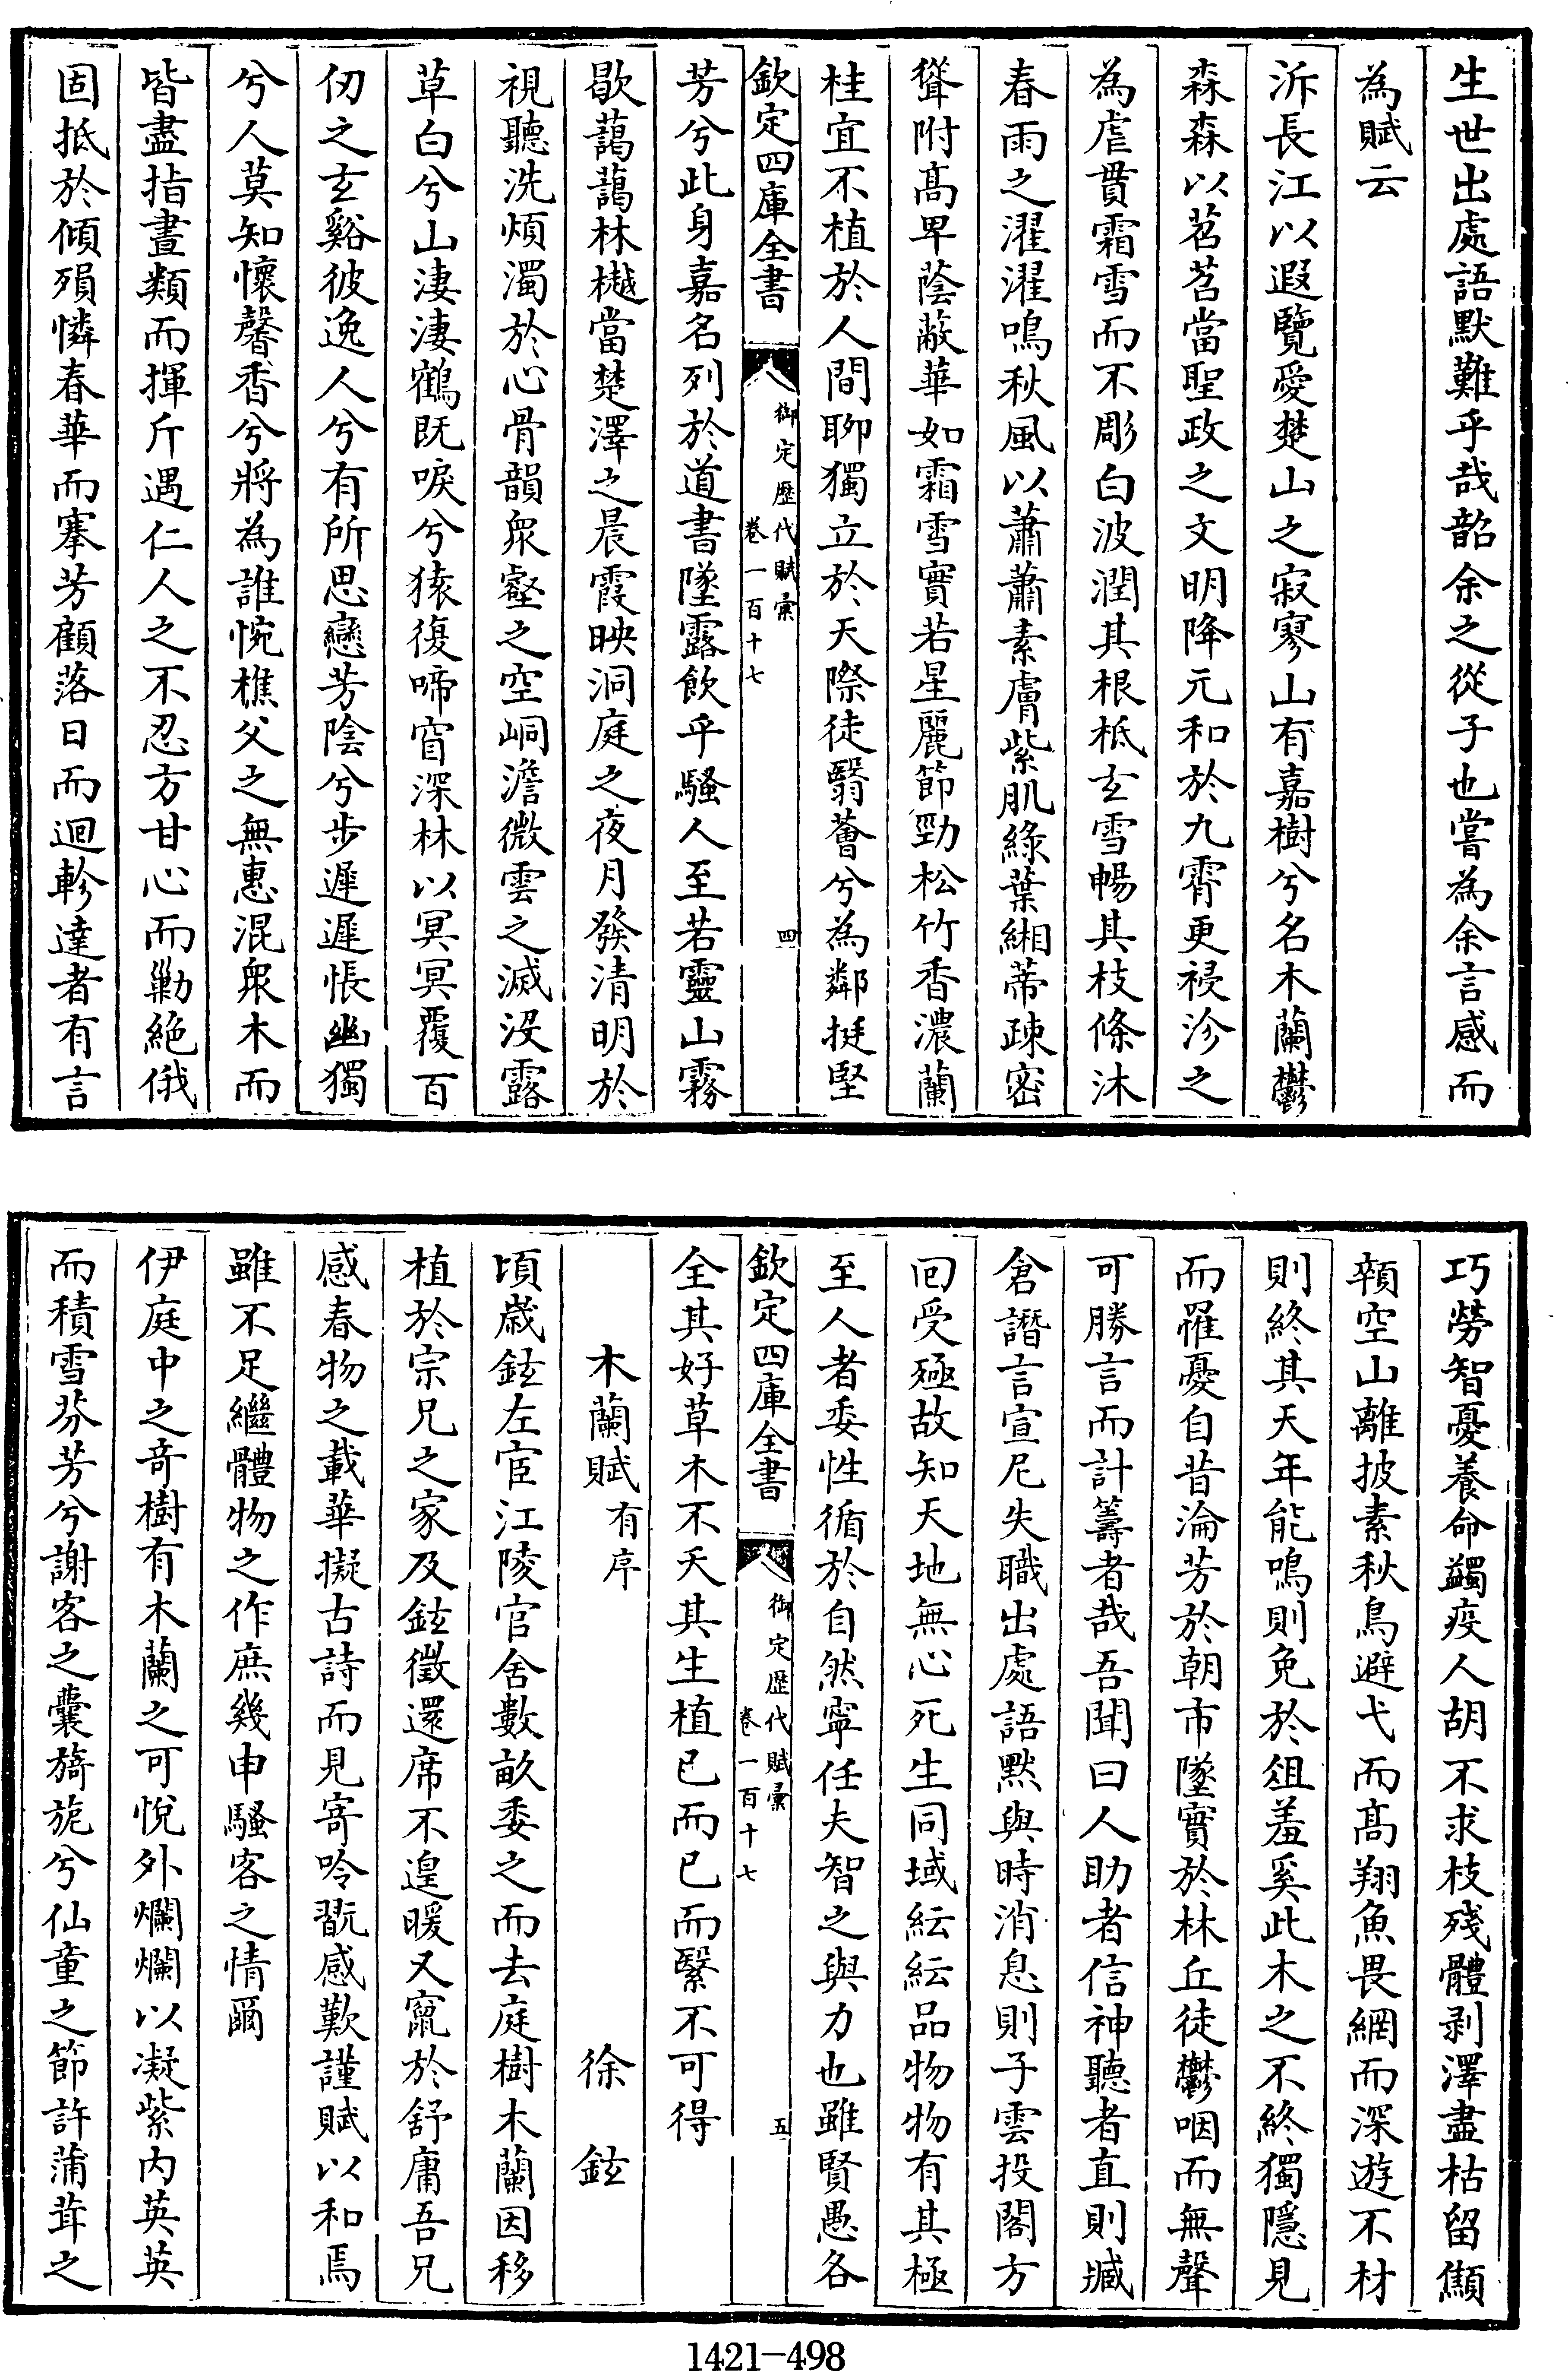 生世出處語默難乎哉韶余之從子也嘗為余言感而
為賦云
泝長江以遐覽愛楚山之寂寥山有嘉樹兮名木蘭鬱
森森以苕苕當聖政之文明降元和於九霄更祲沴之
為虐貫霜雪而不彫白波潤其根柢玄雪暢其枝條沐
春雨之濯濯鳴秋風以蕭蕭素膚紫肌綠葉緗蒂疎密
聳附高卑蔭蔽華如霜雪實若星麗節勁松竹香濃蘭
桂宜不植於人間聊獨立於天際徒翳薈兮為鄰挺堅
欽定四庫全書 御定歷代賦彙 卷一百十七 四
芳兮此身嘉名列於道書墜露飲乎騷人至若靈山霧
歇藹藹林樾當楚澤之晨霞映洞庭之夜月發清明於
視聽洗煩濁於心骨韻衆壑之空峒澹微雲之滅沒露
草白兮山淒淒鶴既唳兮猿復啼窅深林以冥冥覆百
仞之玄谿彼逸人兮有所思戀芳陰兮步遲遲悵幽獨
兮人莫知懷馨香兮將為誰惋樵父之無惠混衆木而
皆盡指晝類而揮斤遇仁人之不忍方甘心而勦絶俄
固抵於傾殞憐春華而搴芳顧落日而迴軫達者有言
巧勞智憂養命蠲疫人胡不求枝殘體剥澤盡枯留顑
顇空山離披素秋鳥避弋而高翔魚畏網而深遊不材
則終其天年能鳴則免於俎羞奚此木之不終獨隱見
而罹憂自昔淪芳於朝市墜實於林丘徒鬱咽而無聲
可勝言而計籌者哉吾聞曰人助者信神聽者直則臧
倉譖言宣尼失職出處語默與時消息則子雲投閣方
回受殛故知天地無心死生同域紜紜品物物有其極
至人者委性循於自然寧任夫智之與力也雖賢愚各
欽定四庫全書 御定歷代賦彙 卷一百十七 五
全其好草木不夭其生植已而已而繄不可得
木蘭賦有序 徐鉉
頃歲鉉左宦江陵官舍數畝委之而去庭樹木蘭因移
植於宗兄之家及鉉徵還席不遑暖又竄於舒庸吾兄
感春物之載華擬古詩而見寄吟翫感歎謹賦以和焉
雖不足繼體物之作庶幾申騷客之情爾
伊庭中之奇樹有木蘭之可悅外爛爛以凝紫內英英
而積雪芬芳兮謝客之囊旖旎兮仙童之節許蒲茸之
1421-498